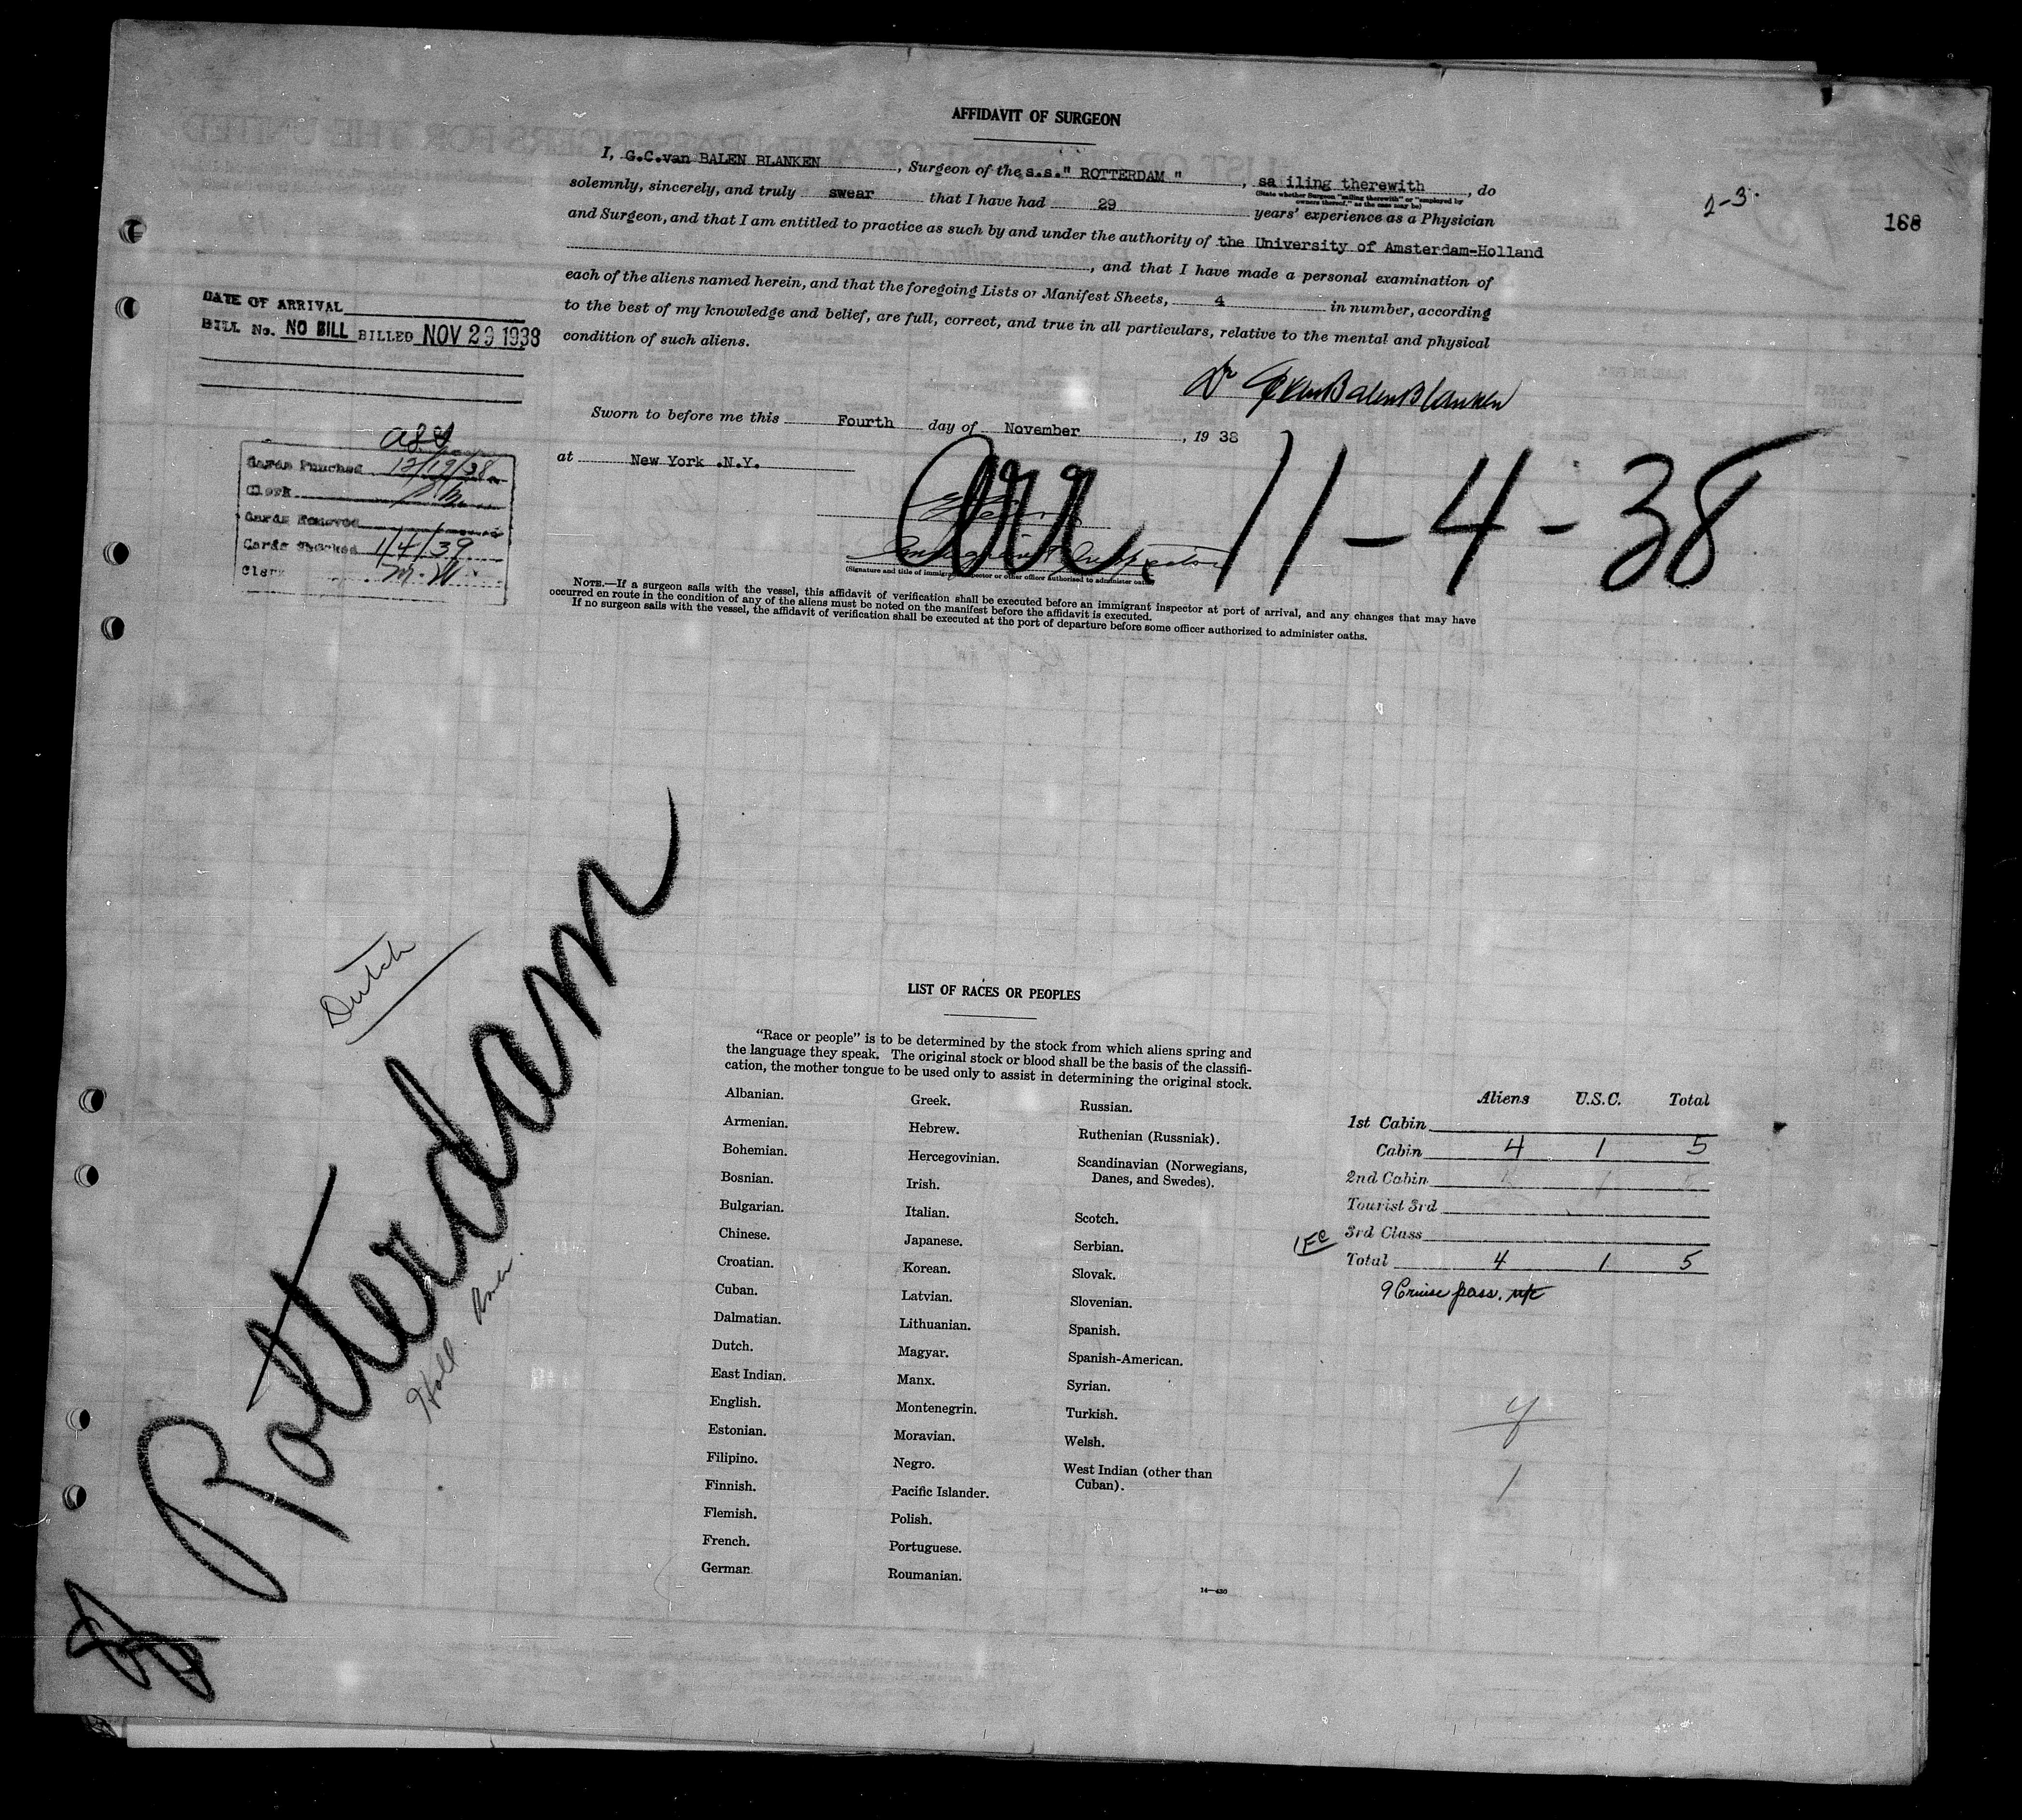 AFFIDAVIT OF SURGEON
I, G.C.van BALEN BLANKEN, Surgeon of the s.s." ROTTERDAM ", sa iling therewith, do
(State whether Surgeon "sailing therewith" or "employed by
owners thereof," as the case may be)
solemnly, sincerely, and truly swear that I have had 29 years' experience as a Physician
and Surgeon, and that I am entitled to practice as such by and under the authority of the University of Amsterdam-Holland
, and that I have made a personal examination of
each of the aliens named herein, and that the foregoing Lists or Manifest Sheets, 4 in number, according
to the best of my knowledge and belief, are full, correct, and true in all particulars, relative to the mental and physical
condition of such aliens.
2-3.
168
DATE OF ARRIVAL
BILL No. NO BILL BILLED NOV 29 1938
Dr GCvanBalenBlanken
Sworn to before me this Fourth day of November, 19 38
at New York .N.Y.
Arr 11-4-38
Immigrant Inspector
(Signature and title of immigrant inspector or other officer authorized to administer oaths)
Cards Punched 12/19/38
Clerk
Cards Removed
Cards Checked 1/4/39
Clerk M.W.
NOTE.—If a surgeon sails with the vessel, this affidavit of verification shall be executed before an immigrant inspector at port of arrival, and any changes that may have
occurred en route in the condition of any of the aliens must be noted on the manifest before the affidavit is executed.
If no surgeon sails with the vessel, the affidavit of verification shall be executed at the port of departure before some officer authorized to administer oaths.
Dutch
Rotterdam
Holl. Amer.
LIST OF RACES OR PEOPLES
"Race or people" is to be determined by the stock from which aliens spring and
the language they speak. The original stock or blood shall be the basis of the classifi-
cation, the mother tongue to be used only to assist in determining the original stock.
Albanian.
Armenian.
Bohemian.
Bosnian.
Bulgarian.
Chinese.
Croatian.
Cuban.
Dalmatian.
Dutch.
East Indian.
English.
Estonian.
Filipino.
Finnish.
Flemish.
French.
German.
Greek.
Hebrew.
Hercegovinian.
Irish.
Italian.
Japanese.
Korean.
Latvian.
Lithuanian.
Magyar.
Manx.
Montenegrin.
Moravian.
Negro.
Pacific Islander.
Polish.
Portuguese.
Roumanian.
Russian.
Ruthenian (Russniak).
Scandinavian (Norwegians,
Danes, and Swedes).
Scotch.
Serbian.
Slovak.
Slovenian.
Spanish.
Spanish-American.
Syrian.
Turkish.
Welsh.
West Indian (other than
Cuban).
14—430
Aliens U.S.C. Total
1st Cabin
Cabin 4 1 5
2nd Cabin
Tourist 3rd
3rd Class
Total 4 1 5
9 Cruise pass.
1